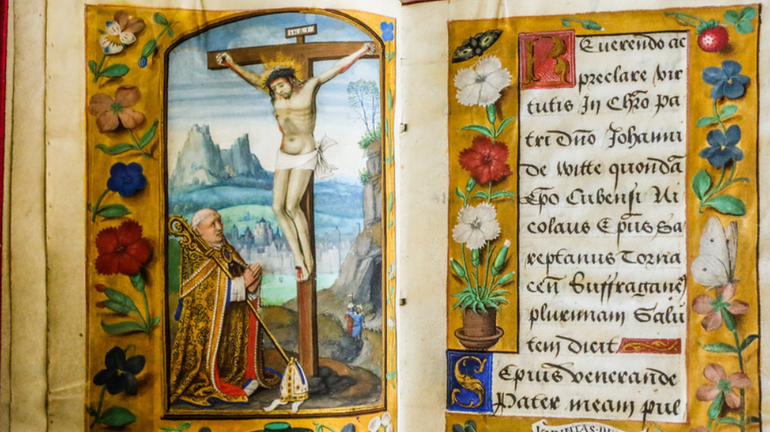 INRI
Reuerendo ac
preclare vir
tutis In Chr̃o Pa
tri Dño Johanni
de witte quondã
Ep̃o Cubensi Ni
colaus Ep̃us Sa
reptanus Torna
ceñ Suffraganeꝰ
plurimam Salu
tem dicit
Sepius venerande
Pater meam pul